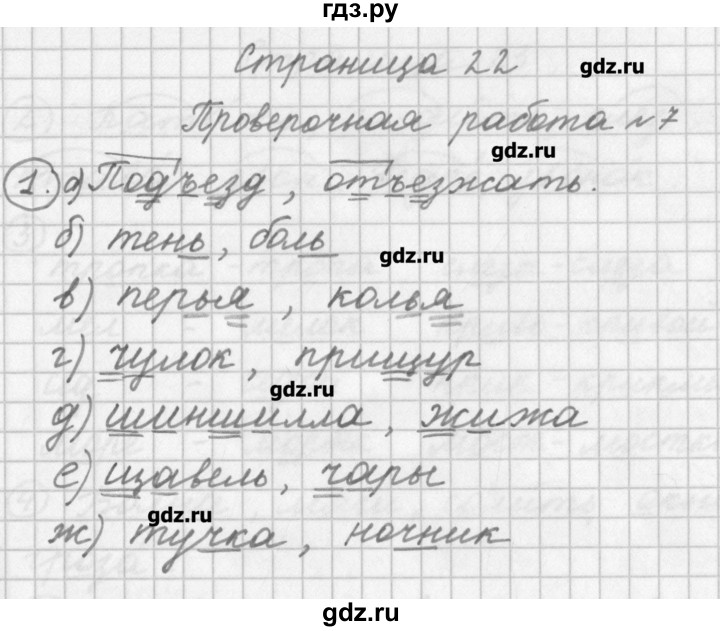 гдз.ру
Страница 22
gdz.ru
Проверочная работа №7
gdz.ru
1. а) Подъезд, отъезжать.
б) тень, боль
gdz.ru
в) перья, колья
г) чулок, прищур
gdz.ru
д) шиншилла, жижа
е) щавель, чары
gdz.ru
ж) тучка, ночник
gdz.ru